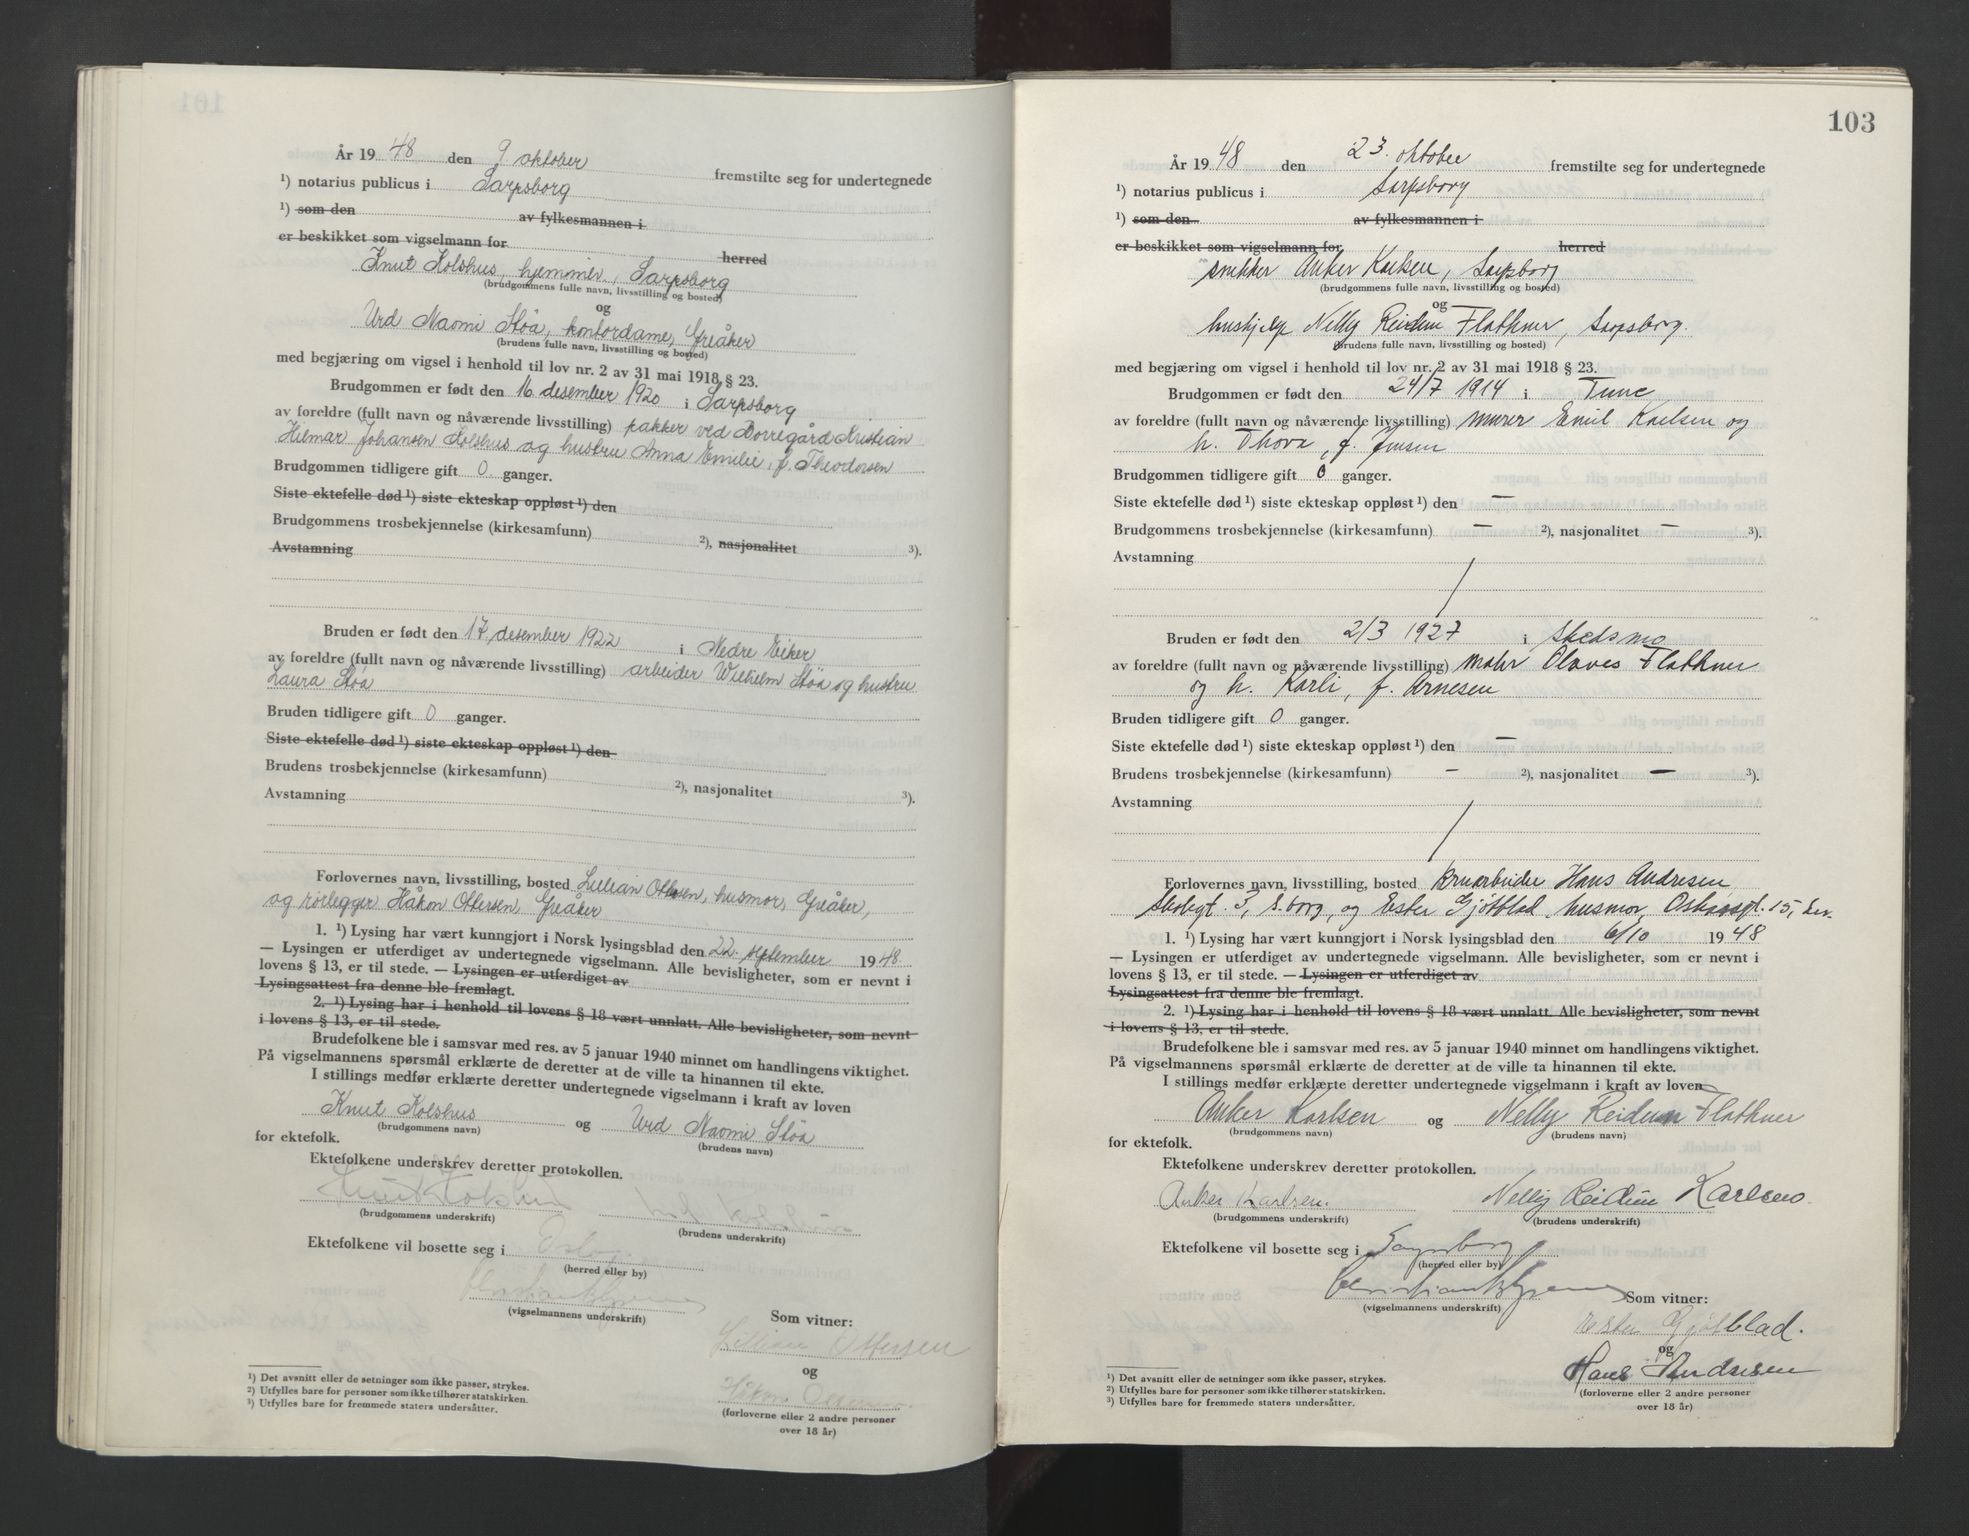 År 1948 den 9 oktober
fremstilte seg for undertegnede
¹) notarius publicus i Sarpsborg
¹) som den av fylkesmannen i
er beskikket som vigselmann for herred
Knut Kolshus, hjemmev., Sarpsborg
(brudgommens fulle navn, livsstilling og bosted)
og
Urd Naomi Stöa, kontordame, Greåker
(brudens fulle navn, livsstilling og bosted)
med begjæring om vigsel i henhold til lov nr. 2 av 31 mai 1918 § 23.
Brudgommen er født den 16 desember 1920 i Sarpsborg
av foreldre (fullt navn og nåværende livsstilling) pakker ved Borregård Kristian
Hilmar Johansen Kolshus og hustru Anna Emilie, f. Theodorsen
Brudgommen tidligere gift 0 ganger.
Siste ektefelle død ¹) siste ekteskap oppløst ¹) den
Brudgommens trosbekjennelse (kirkesamfunn) ²), nasjonalitet ³).
Avstamning
Bruden er født den 17. desember 1922 i Nedre Eiker
av foreldre (fullt navn og nåværende livsstilling) arbeider Wilhelm Stöa og hustru
Laura Stöa
Bruden tidligere gift 0 ganger.
Siste ektefelle død ¹) siste ekteskap oppløst ¹) den
Brudens trosbekjennelse (kirkesamfunn) ²), nasjonalitet ³).
Avstamning
Forlovernes navn, livsstilling, bosted Lillian Ottersen, husmor, Greåker,
og rørlegger Håkon Ottersen, Greåker
1. ¹) Lysing har vært kunngjort i Norsk lysingsblad den 22. september 1948.
— Lysingen er utferdiget av undertegnede vigselmann. Alle bevisligheter, som er nevnt i
lovens § 13, er til stede. — Lysingen er utferdiget av
Lysingsattest fra denne ble fremlagt.
2. ¹) Lysing har i henhold til lovens § 18 vært unnlatt. Alle bevisligheter, som nevnt
i lovens § 13, er til stede.
Brudefolkene ble i samsvar med res. av 5 januar 1940 minnet om handlingens viktighet.
På vigselmannens spørsmål erklærte de deretter at de ville ta hinannen til ekte.
I stillings medfør erklærte deretter undertegnede vigselmann i kraft av loven
Knut Kolshus og Urd Naomi Stöa
(brudgommens navn) (brudens navn)
for ektefolk.
Ektefolkene underskrev deretter protokollen.
Knut Kolshus
(brudgommens underskrift) (brudens underskrift)
Ektefolkene vil bosette seg i Oslo
(herred eller by)
(vigselmannens underskrift)
Som vitner:
Lillian Ottersen
og
Håkon Ottersen.
(forloverne eller 2 andre personer
over 18 år)
¹) Det avsnitt eller de setninger som ikke passer, strykes.
²) Utfylles bare for personer som ikke tilhører statskirken.
³) Utfylles bare for fremmede staters undersåtter.
103
År 1948 den 23. oktober
fremstilte seg for undertegnede
¹) notarius publicus i Sarpsborg
¹) som den av fylkesmannen i
er beskikket som vigselmann for herred
snekker Anker Karlsen, Sarpsborg
(brudgommens fulle navn, livsstilling og bosted)
og
hushjelp Nelly Reidun Flathner, Sarpsborg.
(brudens fulle navn, livsstilling og bosted)
med begjæring om vigsel i henhold til lov nr. 2 av 31 mai 1918 § 23.
Brudgommen er født den 24/7 1914 i Tune
av foreldre (fullt navn og nåværende livsstilling) murer Emil Karlsen og
h. Thora, f. Jensen
Brudgommen tidligere gift 0 ganger.
Siste ektefelle død ¹) siste ekteskap oppløst ¹) den —
Brudgommens trosbekjennelse (kirkesamfunn) — ²), nasjonalitet — ³).
Avstamning
Bruden er født den 2/3 1927 i Skedsmo
av foreldre (fullt navn og nåværende livsstilling) maler Olaves Flathner
og h. Karli, f. Arnesen
Bruden tidligere gift 0 ganger.
Siste ektefelle død ¹) siste ekteskap oppløst ¹) den —
Brudens trosbekjennelse (kirkesamfunn) — ²), nasjonalitet — ³).
Avstamning
Forlovernes navn, livsstilling, bosted Hans Andresen
3, S.borg, og Ester Gjötblad, husmor, Oskarsgt. 15,
1. ¹) Lysing har vært kunngjort i Norsk lysingsblad den 6/10 1948
— Lysingen er utferdiget av undertegnede vigselmann. Alle bevisligheter, som er nevnt i
lovens § 13, er til stede. — Lysingen er utferdiget av
Lysingsattest fra denne ble fremlagt.
2. ¹) Lysing har i henhold til lovens § 18 vært unnlatt. Alle bevisligheter, som nevnt
i lovens § 13, er til stede.
Brudefolkene ble i samsvar med res. av 5 januar 1940 minnet om handlingens viktighet.
På vigselmannens spørsmål erklærte de deretter at de ville ta hinannen til ekte.
I stillings medfør erklærte deretter undertegnede vigselmann i kraft av loven
Anker Karlsen og Nelly Reidun Flathner
(brudgommens navn) (brudens navn)
for ektefolk.
Ektefolkene underskrev deretter protokollen.
Anker Karlsen. Nelly Reidun Karlsen
(brudgommens underskrift) (brudens underskrift)
Ektefolkene vil bosette seg i Sarpsborg
(herred eller by)
(vigselmannens underskrift)
Som vitner:
Ester Gjötblad.
og
Hans Andresen
(forloverne eller 2 andre personer
over 18 år)
¹) Det avsnitt eller de setninger som ikke passer, strykes.
²) Utfylles bare for personer som ikke tilhører statskirken.
³) Utfylles bare for fremmede staters undersåtter.